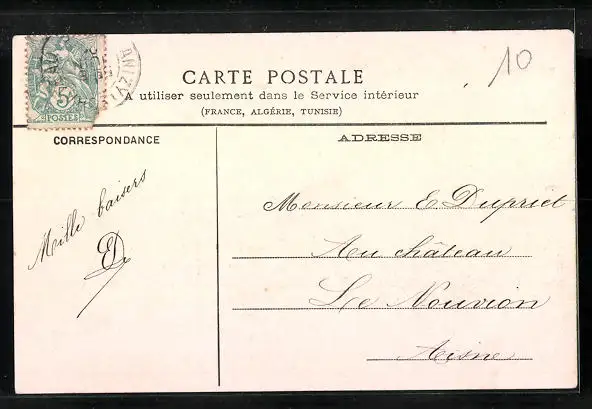 10
CARTE POSTALE
A utiliser seulement dans le Service intérieur
(FRANCE, ALGÉRIE, TUNISIE)
5c
POSTES
ANIZY
CORRESPONDANCE
ADRESSE
Mille baisers
ED
Monsieur E Dupriet
Au château
Le Nouvion
Aisne